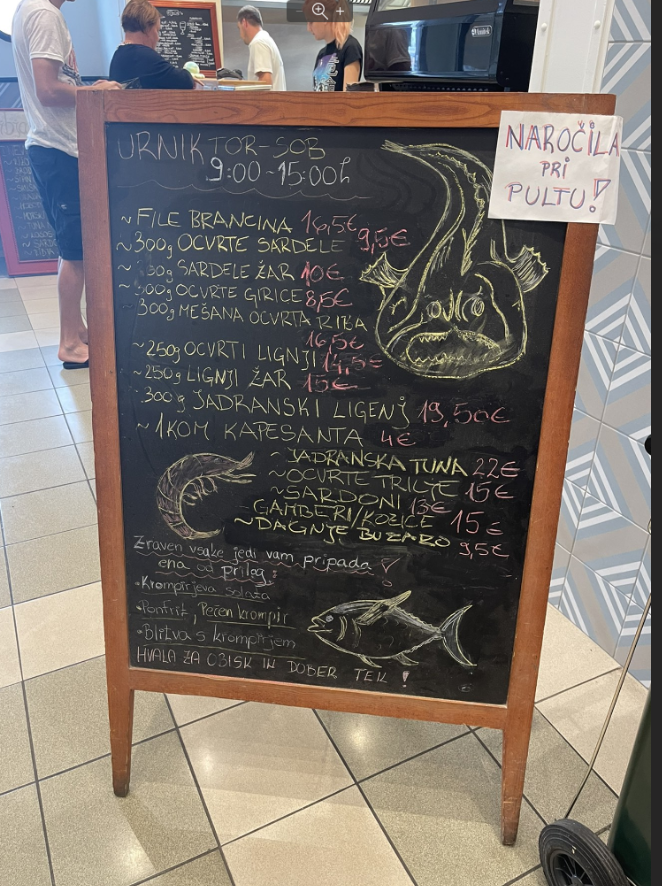 URNIK TOR-SOB
9:00-15:00h
NAROČILA
PRI
PULTU!
~ FILE BRANCINA 16,5€
~ 300g OCVRTE SARDELE 9,5€
~ 300g SARDELE ŽAR 10€
~ 300g OCVRTE GIRICE 8,5€
~ 300g MEŠANA OCVRTA RIBA
16,5€
~ 250g OCVRTI LIGNJI 14,5€
~ 250g LIGNJI ŽAR 15€
~ 300g JADRANSKI LIGENJ 19,50€
~ 1KOM KAPESANTA 4€
~ JADRANSKA TUNA 22€
~ OCVRTE TRILJE 15€
~ SARDONI 13€
GAMBERI/KOZICE 15€
~ DAGNJE BUZARO 9,5€
Zraven vsake jedi vam pripada
ena od prilog:
• Krompirjeva solata
• Pomfrit, Pečen krompir
• Blitva s krompirjem
HVALA ZA OBISK IN DOBER TEK!